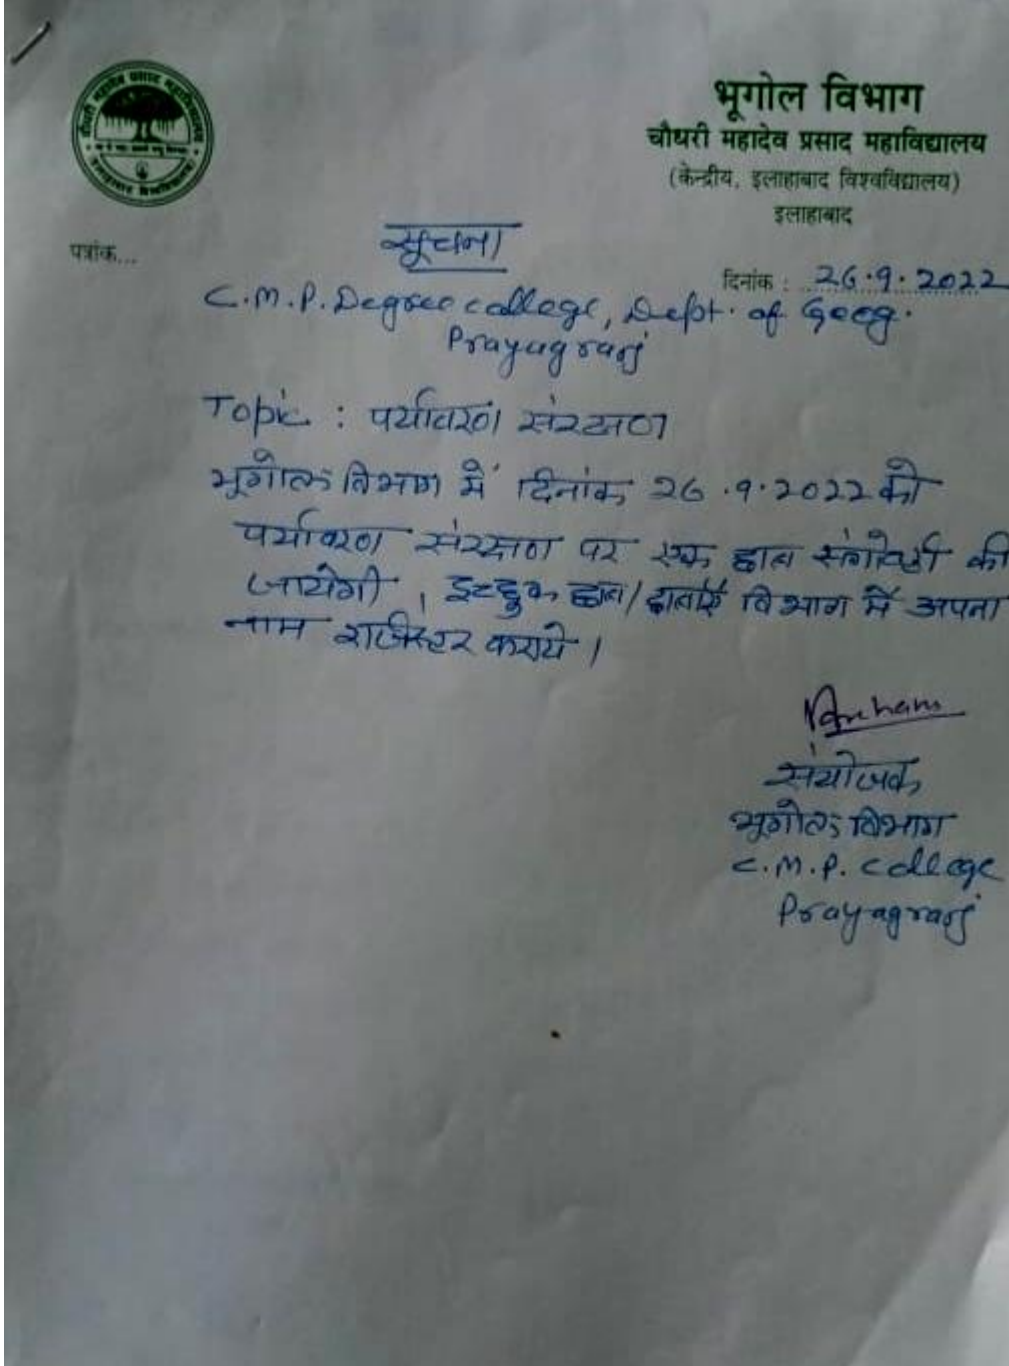 चौधरी महादेव प्रसाद महाविद्यालय
इलाहाबाद विश्वविद्यालय
भूगोल विभाग
चौधरी महादेव प्रसाद महाविद्यालय
(केन्द्रीय, इलाहाबाद विश्वविद्यालय)
इलाहाबाद
पत्रांक...
सूचना
दिनांक : 26.9.2022
C.M.P. Degree college, Dept. of Geog.
Prayagraj
Topic : पर्यावरण संरक्षण
भूगोल विभाग में दिनांक 26.9.2022 को
पर्यावरण संरक्षण पर एक छात्र संगोष्ठी की
जायेगी, इच्छुक छात्र/छात्राएँ विभाग में अपना
नाम रजिस्टर कराये।
संयोजक
भूगोल विभाग
C.M.P. College
Prayagraj